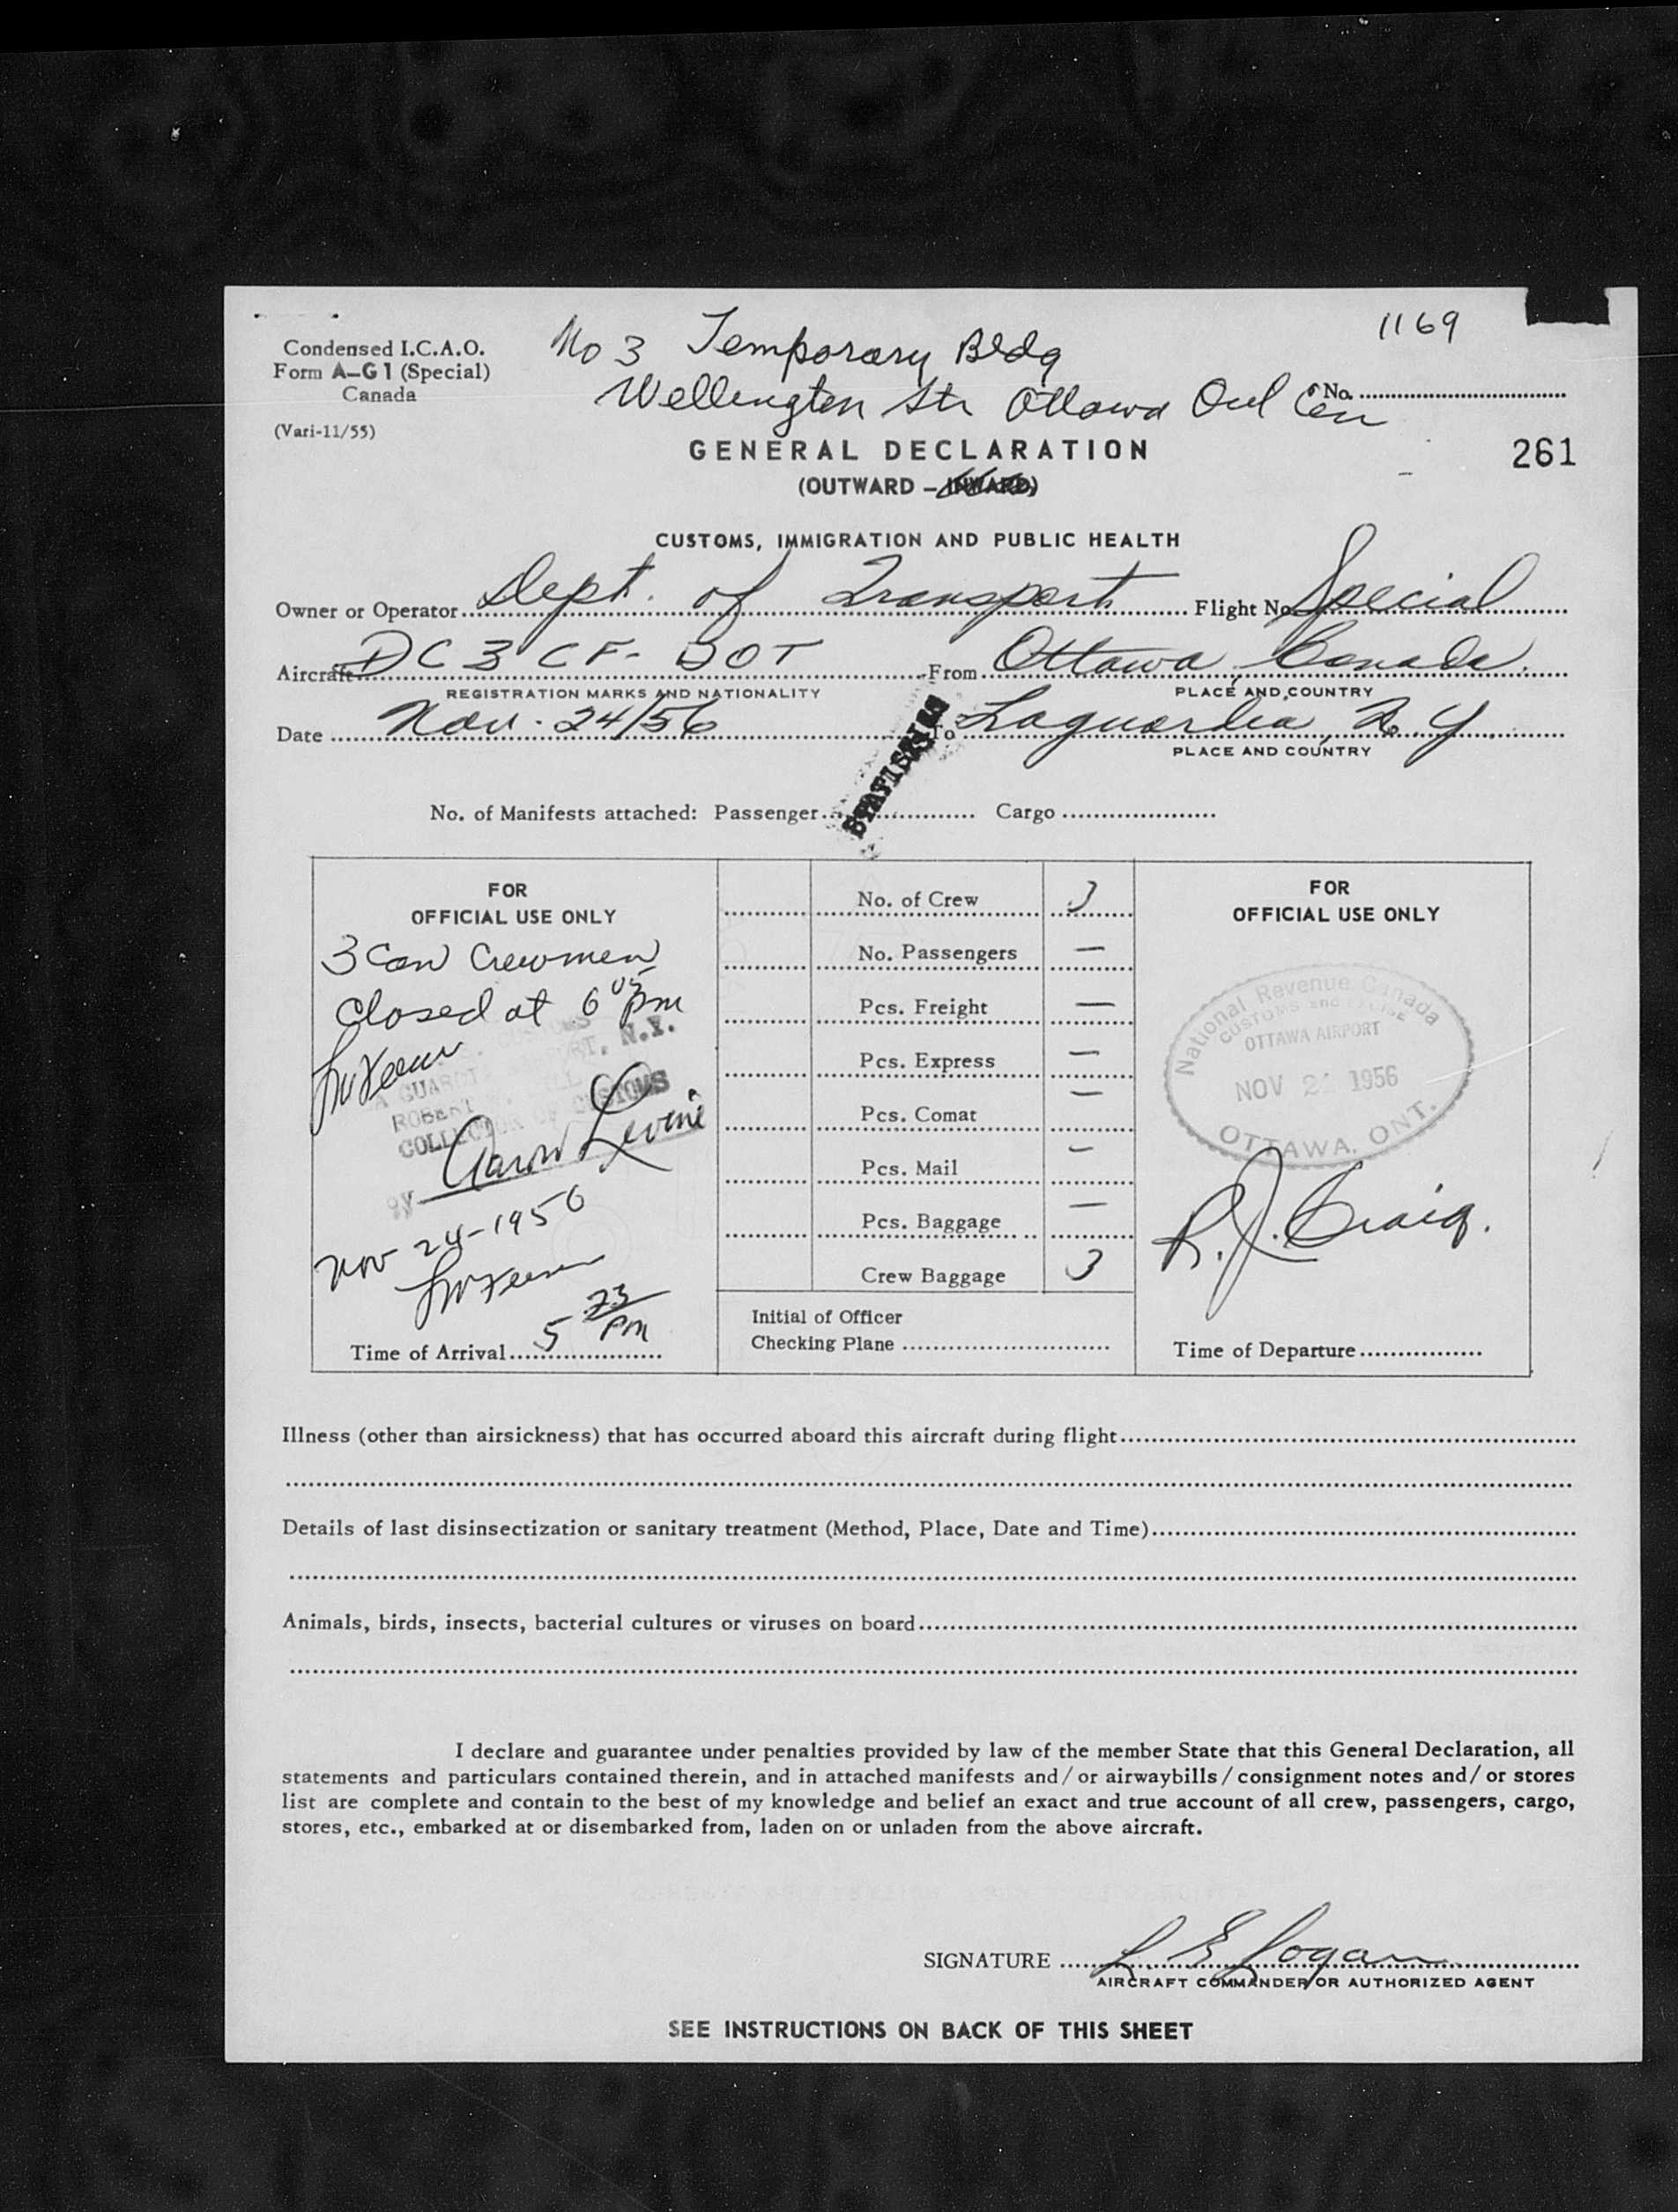 1169
Condensed I.C.A.O.
Form A-G 1 (Special)
Canada
(Vari-11/55)
No 3 Temporary Bldg
Wellington Str Ottawa Ont Can
No.
261
GENERAL DECLARATION
(OUTWARD - INWARD)
CUSTOMS, IMMIGRATION AND PUBLIC HEALTH
Owner or Operator Dept. of Transport Flight No. Special
Aircraft DC 3 CF- DOT From Ottawa Canada.
REGISTRATION MARKS AND NATIONALITY PLACE AND COUNTRY
Date Nov. 24/56 To Laguardia N.Y.
PLACE AND COUNTRY
STATISTICS
No. of Manifests attached: Passenger Cargo
FOR
OFFICIAL USE ONLY
3 Can Crewmen
Closed at 6 05 pm
A GUARDI
ORT, N.Y.
ROBERT
COLLECTOR OF CUSTOMS
BY Aaron Levine
Nov 24-1956
5 23 PM
Time of Arrival
No. of Crew 3
No. Passengers —
Pcs. Freight —
Pcs. Express —
Pcs. Comat —
Pcs. Mail —
Pcs. Baggage —
Crew Baggage 3
Initial of Officer
Checking Plane
FOR
OFFICIAL USE ONLY
National Revenue Canada
CUSTOMS and EXCISE
OTTAWA AIRPORT
NOV 1956
OTTAWA, ONT.
R.J. Craig.
Time of Departure
Illness (other than airsickness) that has occurred aboard this aircraft during flight
Details of last disinsectization or sanitary treatment (Method, Place, Date and Time)
Animals, birds, insects, bacterial cultures or viruses on board
I declare and guarantee under penalties provided by law of the member State that this General Declaration, all
statements and particulars contained therein, and in attached manifests and/or airwaybills/consignment notes and/or stores
list are complete and contain to the best of my knowledge and belief an exact and true account of all crew, passengers, cargo,
stores, etc., embarked at or disembarked from, laden on or unladen from the above aircraft.
SIGNATURE L. E Logan
AIRCRAFT COMMANDER OR AUTHORIZED AGENT
SEE INSTRUCTIONS ON BACK OF THIS SHEET